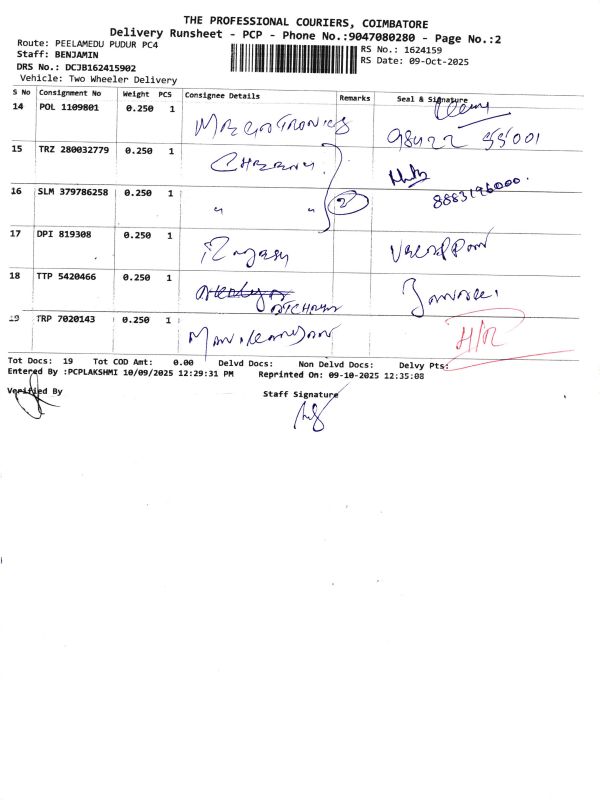 THE PROFESSIONAL COURIERS, COIMBATORE
Delivery Runsheet - PCP - Phone No.:9047080280 - Page No.:2
Route: PEELAMEDU PUDUR PC4
Staff: BENJAMIN
DRS No.: DCJB162415902
Vehicle: Two Wheeler Delivery
RS No.: 1624159
RS Date: 09-Oct-2025
S No Consignment No Weight PCS Consignee Details Remarks Seal & Signature
14 POL 1109801 0.250 1
98422 55001
15 TRZ 280032779 0.250 1
16 SLM 379786258 0.250 1 " " 2 8883196000.
17 DPI 819308 0.250 1
18 TTP 5420466 0.250 1
19 TRP 7020143 0.250 1 H/R
Tot Docs: 19 Tot COD Amt: 0.00 Delvd Docs: Non Delvd Docs: Delvy Pts:
Entered By :PCPLAKSHMI 10/09/2025 12:29:31 PM Reprinted On: 09-10-2025 12:35:08
Verified By Staff Signature